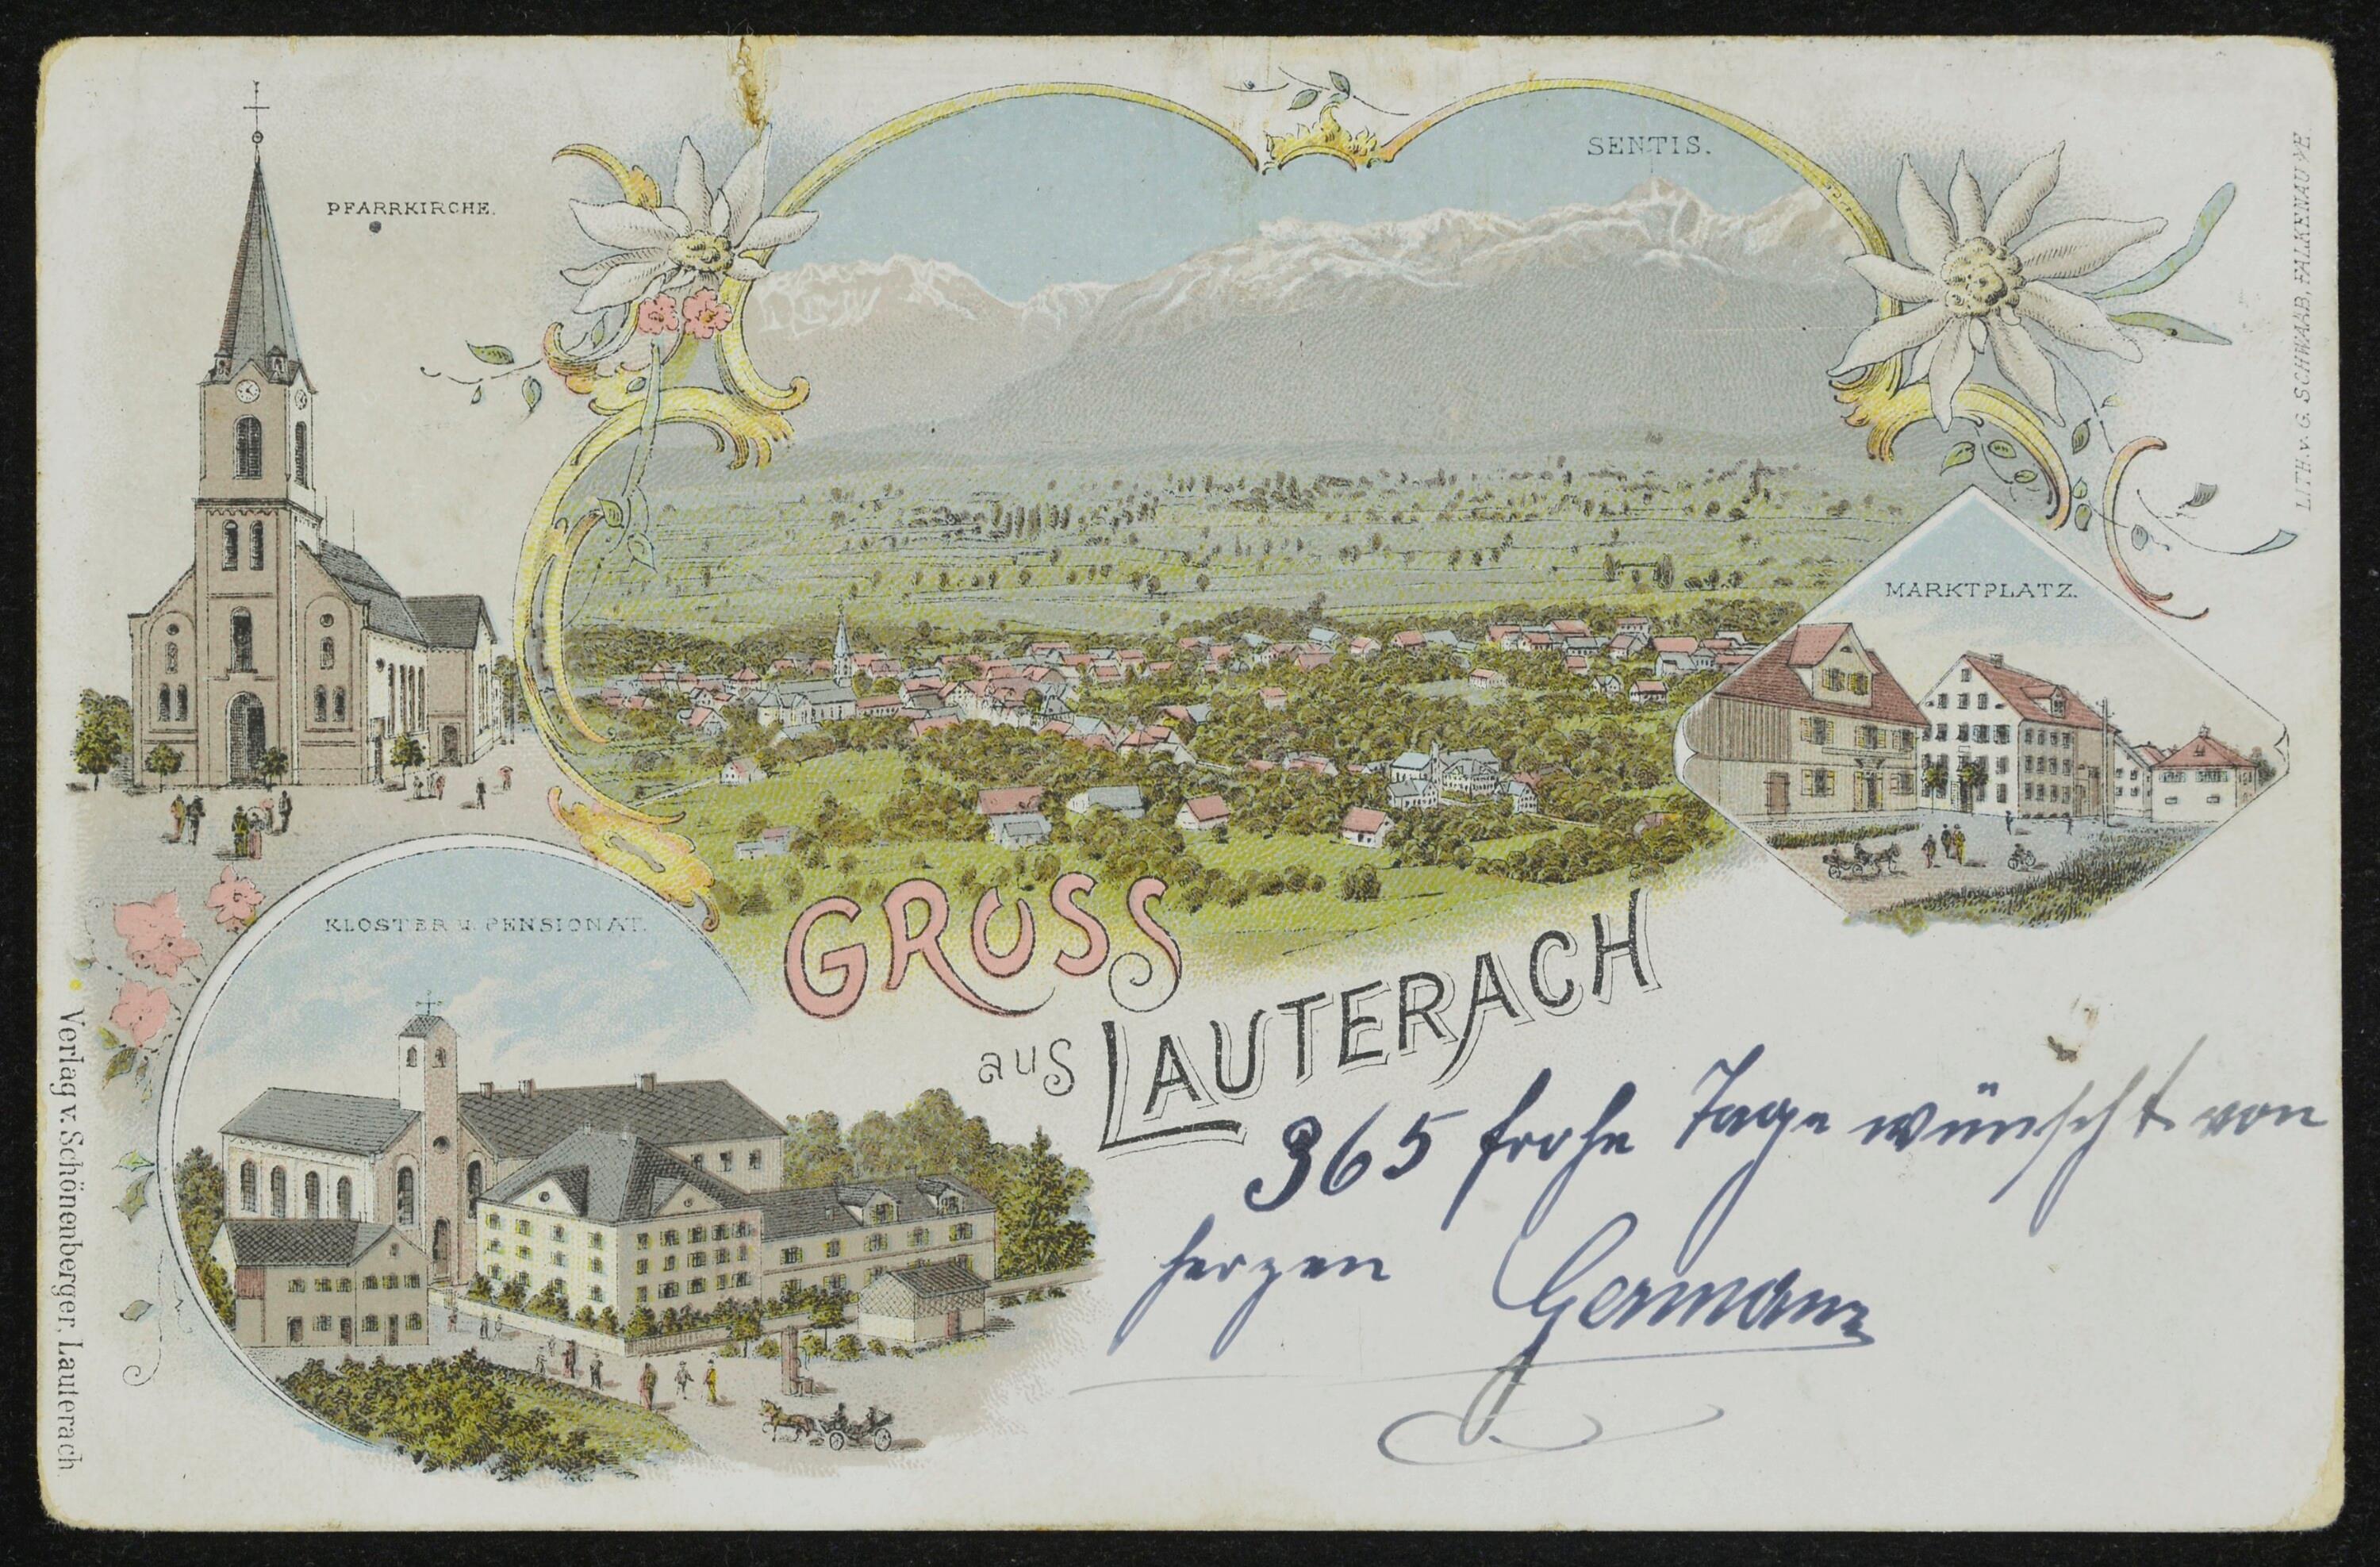 PFARRKIRCHE.
SENTIS.
MARKTPLATZ.
KLOSTER u. PENSIONAT.
GRUSS
aus LAUTERACH
365 frohe Tage wünscht von
herzen Germann
Verlag v. Schönenberger, Lauterach
LITH. v. G. SCHWAAB, FALKENAU %E